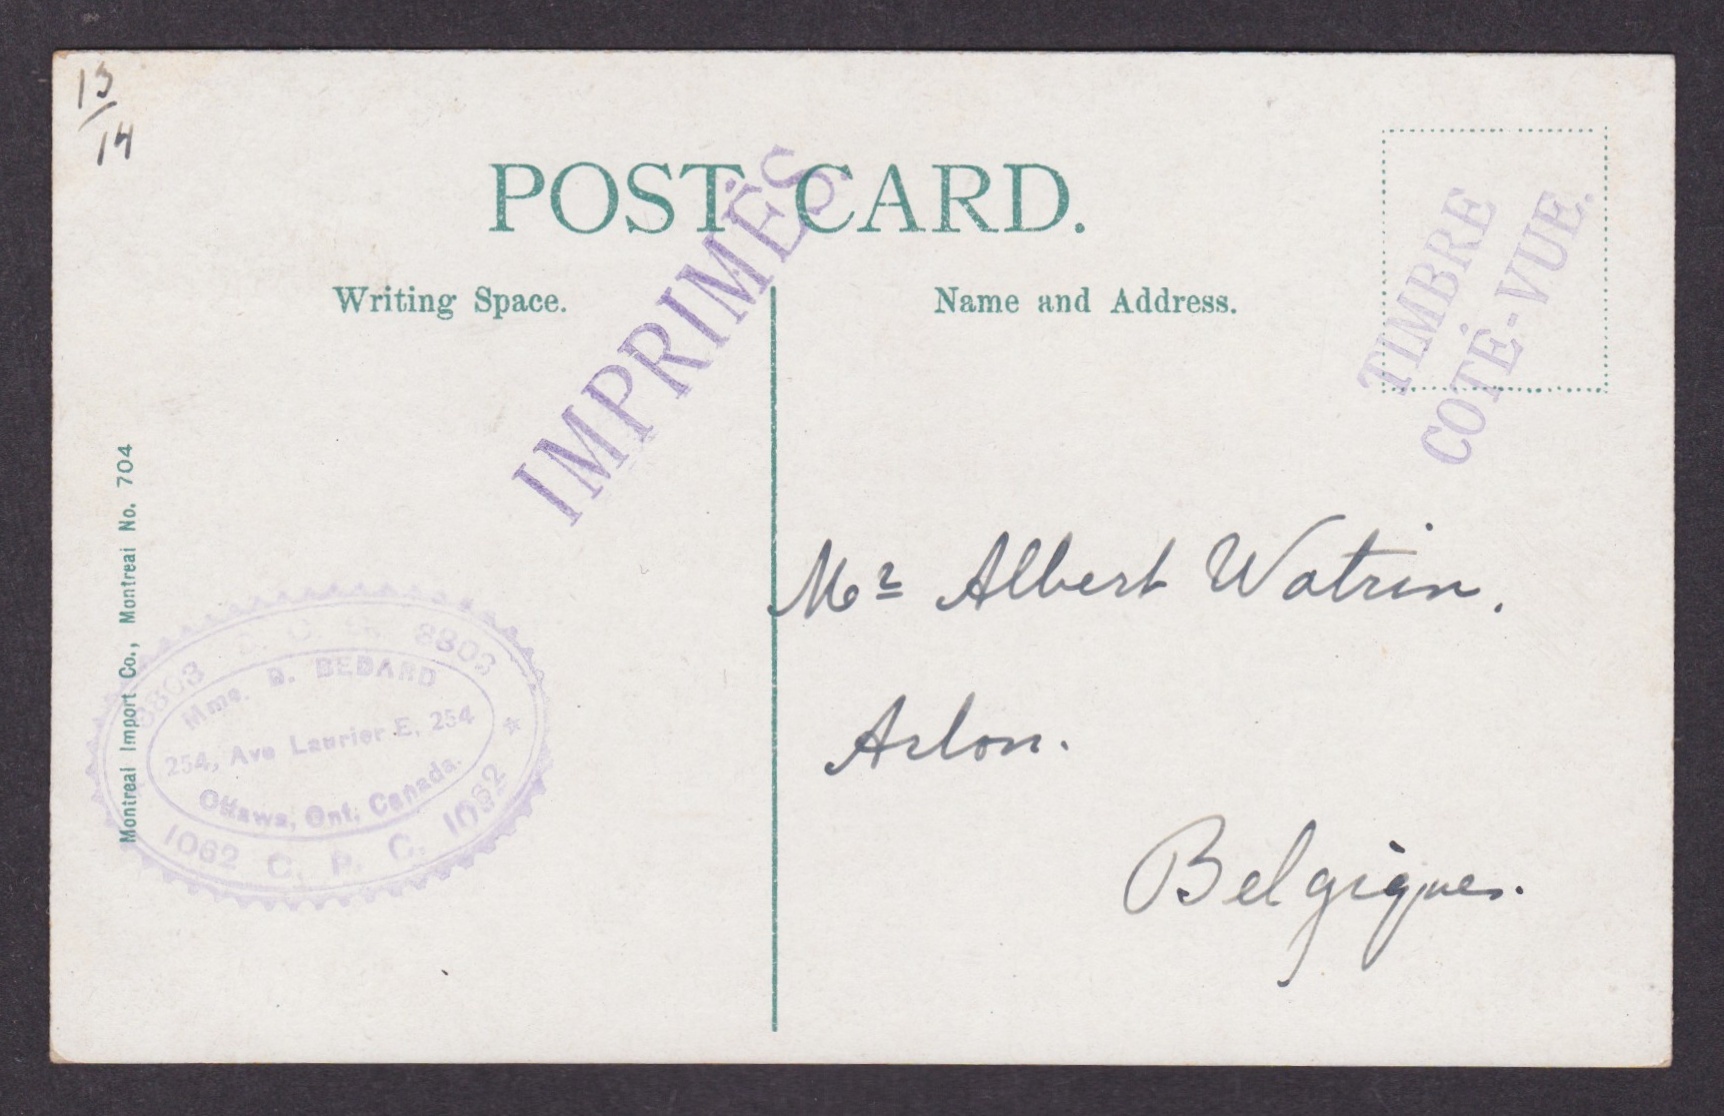 13
14
POST CARD.
IMPRIMÉS.
TIMBRE
COTÉ-VUE.
Writing Space.
Name and Address.
Montreal Import Co., Montreal No. 704
Mr Albert Watrin.
Arlon.
Belgique.
8803 8803
Mme. D. BEDARD
254, Ave Laurier E. 254
Ottawa, Ont. Canada.
1062 C. P. C. 1062